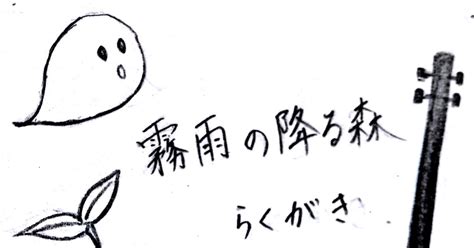 霧雨の降る森
らくがき